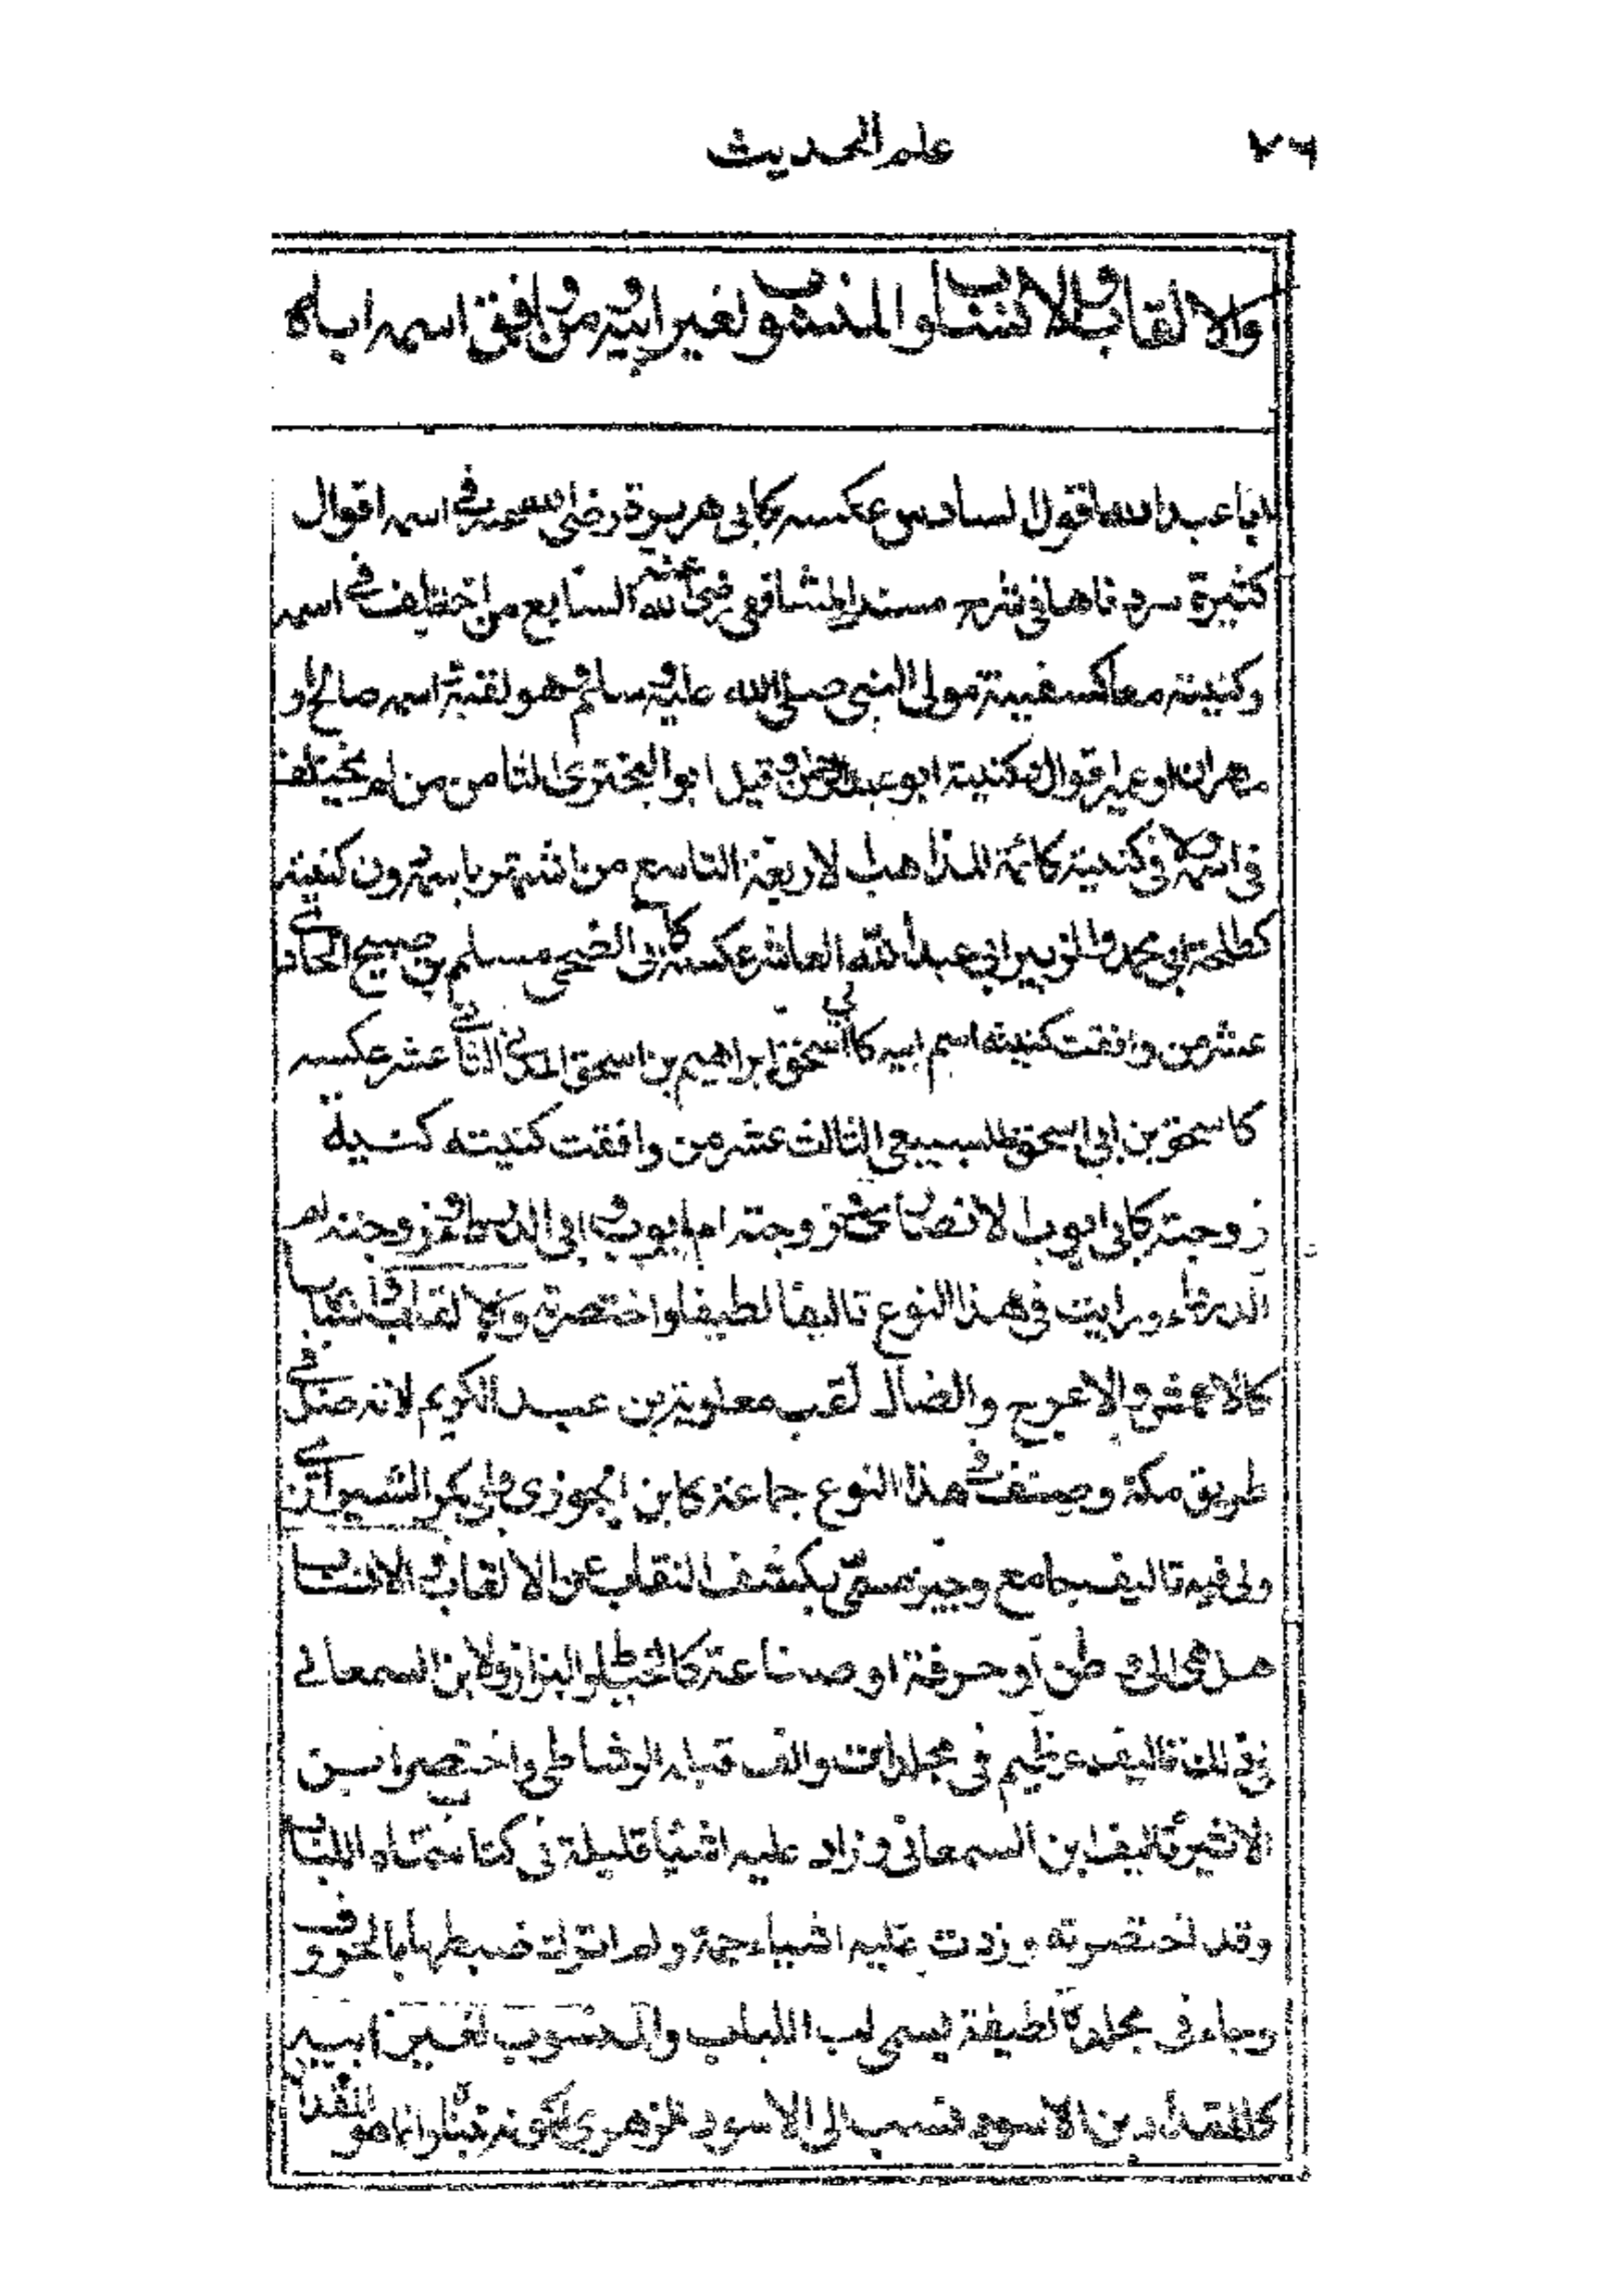 علم الحديث ٧٦
والالقاب والانساب والمنسوب لغير ابيه ومن وافق اسمه اباه
ابا عبد الله اقوال السادس عكسه كابى هريرة رضى الله عنه فى اسمه اقوال
كثيرة سردناها فى شرح مسند الشافعى رضى الله عنه السابع من اختلف فى اسمه
وكنيته معا كسفينة مولى النبى صلى الله عليه وسلم هو لقبه اسمه صالح او
مهران او عمير اقوال وكنيته ابو عبد الرحمن وقيل ابو البخترى الثامن من لم يختلف
فى اسمه ولا فى كنيته كائمة المذاهب الاربعة التاسع من اشتهر باسمه دون كنيته
كطلحة ابى محمد والزبير ابى عبد الله العاشر عكسه كابى الضحى مسلم بن صبيح الحادى
عشر من وافقت كنيته اسم ابيه كابى اسحق ابراهيم بن اسحق المدنى الثانى عشر عكسه
كاسحق بن ابى اسحق السبيعى الثالث عشر من وافقت كنيته كنية
زوجته كابى ايوب الانصارى وزوجته ام ايوب وابى الدرداء وزوجته ام
الدرداء ورايت فى هذا النوع تاليفا لطيفا واختصرته والالقاب والانساب
كالاعمش والاعرج والضال لقب معاوية بن عبد الكريم لانه ضل فى
طريق مكة وصنف فى هذا النوع جماعة كابن الجوزى وابى بكر الشيرازى
ولى فيه تاليف جامع وجيز مسمى بكشف النقاب عن الالقاب والانساب
هل هى الى وطن او حرفة او صناعة كالخياط والبزاز ولابن السمعانى
فى ذلك تاليف عظيم فى مجلدات والف قبله الرشاطى واختصر ابن
الاثير تاليف ابن السمعانى وزاد عليه اشيا قليلة فى كتاب سماه اللباب
وقد اختصرته وزدت عليه اشياء جمة ولم اترك ضبطها بالحروف
وجاء فى مجلدة لطيفة يسمى لب اللباب والمنسوب لغير ابيه
كالمقداد بن الاسود نسب الى الاسود الزهرى لكونه تبناه وانما هو المقداد